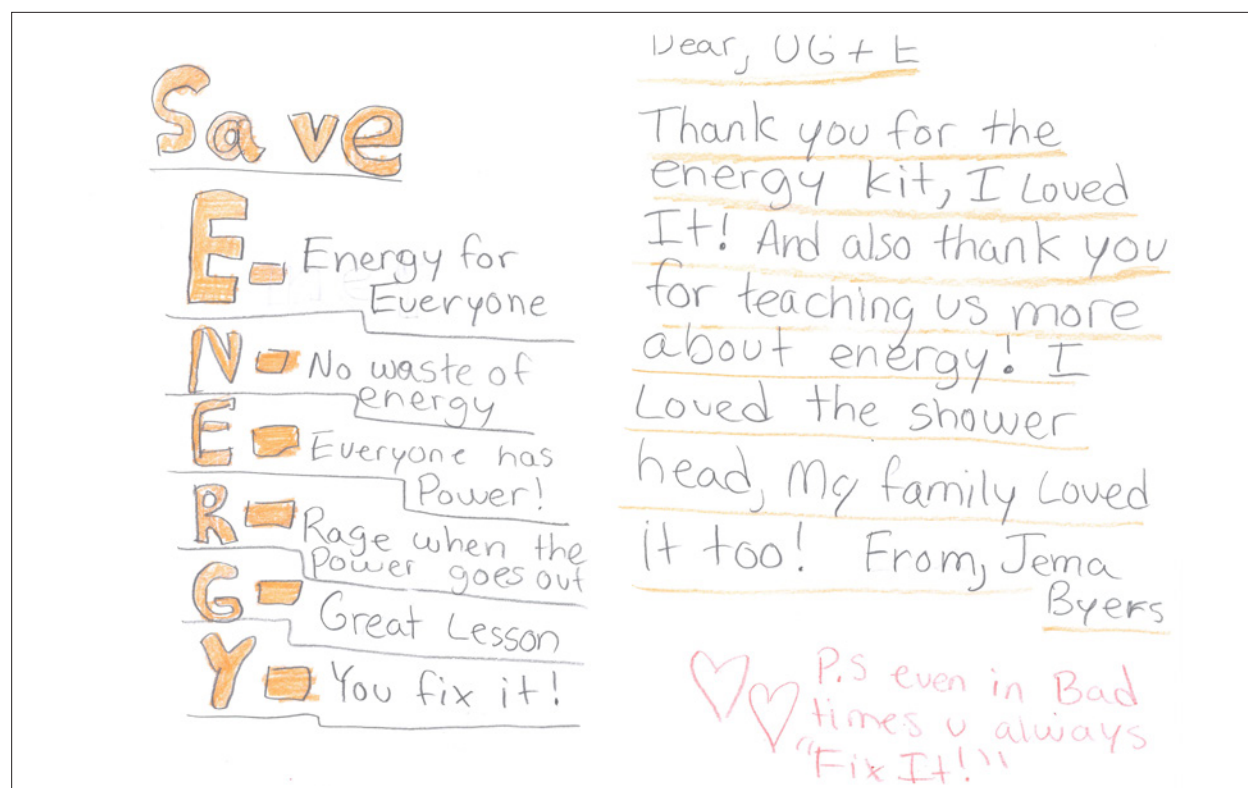 Save
E- Energy for
Everyone
N- No waste of
energy
E- Everyone has
Power!
R- Rage when the
Power goes out
G- Great Lesson
Y- You fix it!
Dear, UG+E
Thank you for the
energy kit, I Loved
It! And also thank you
for teaching us more
about energy! I
Loved the shower
head, My family Loved
it too! From, Jema
Byers
P.S even in Bad
times u always
"Fix It!"